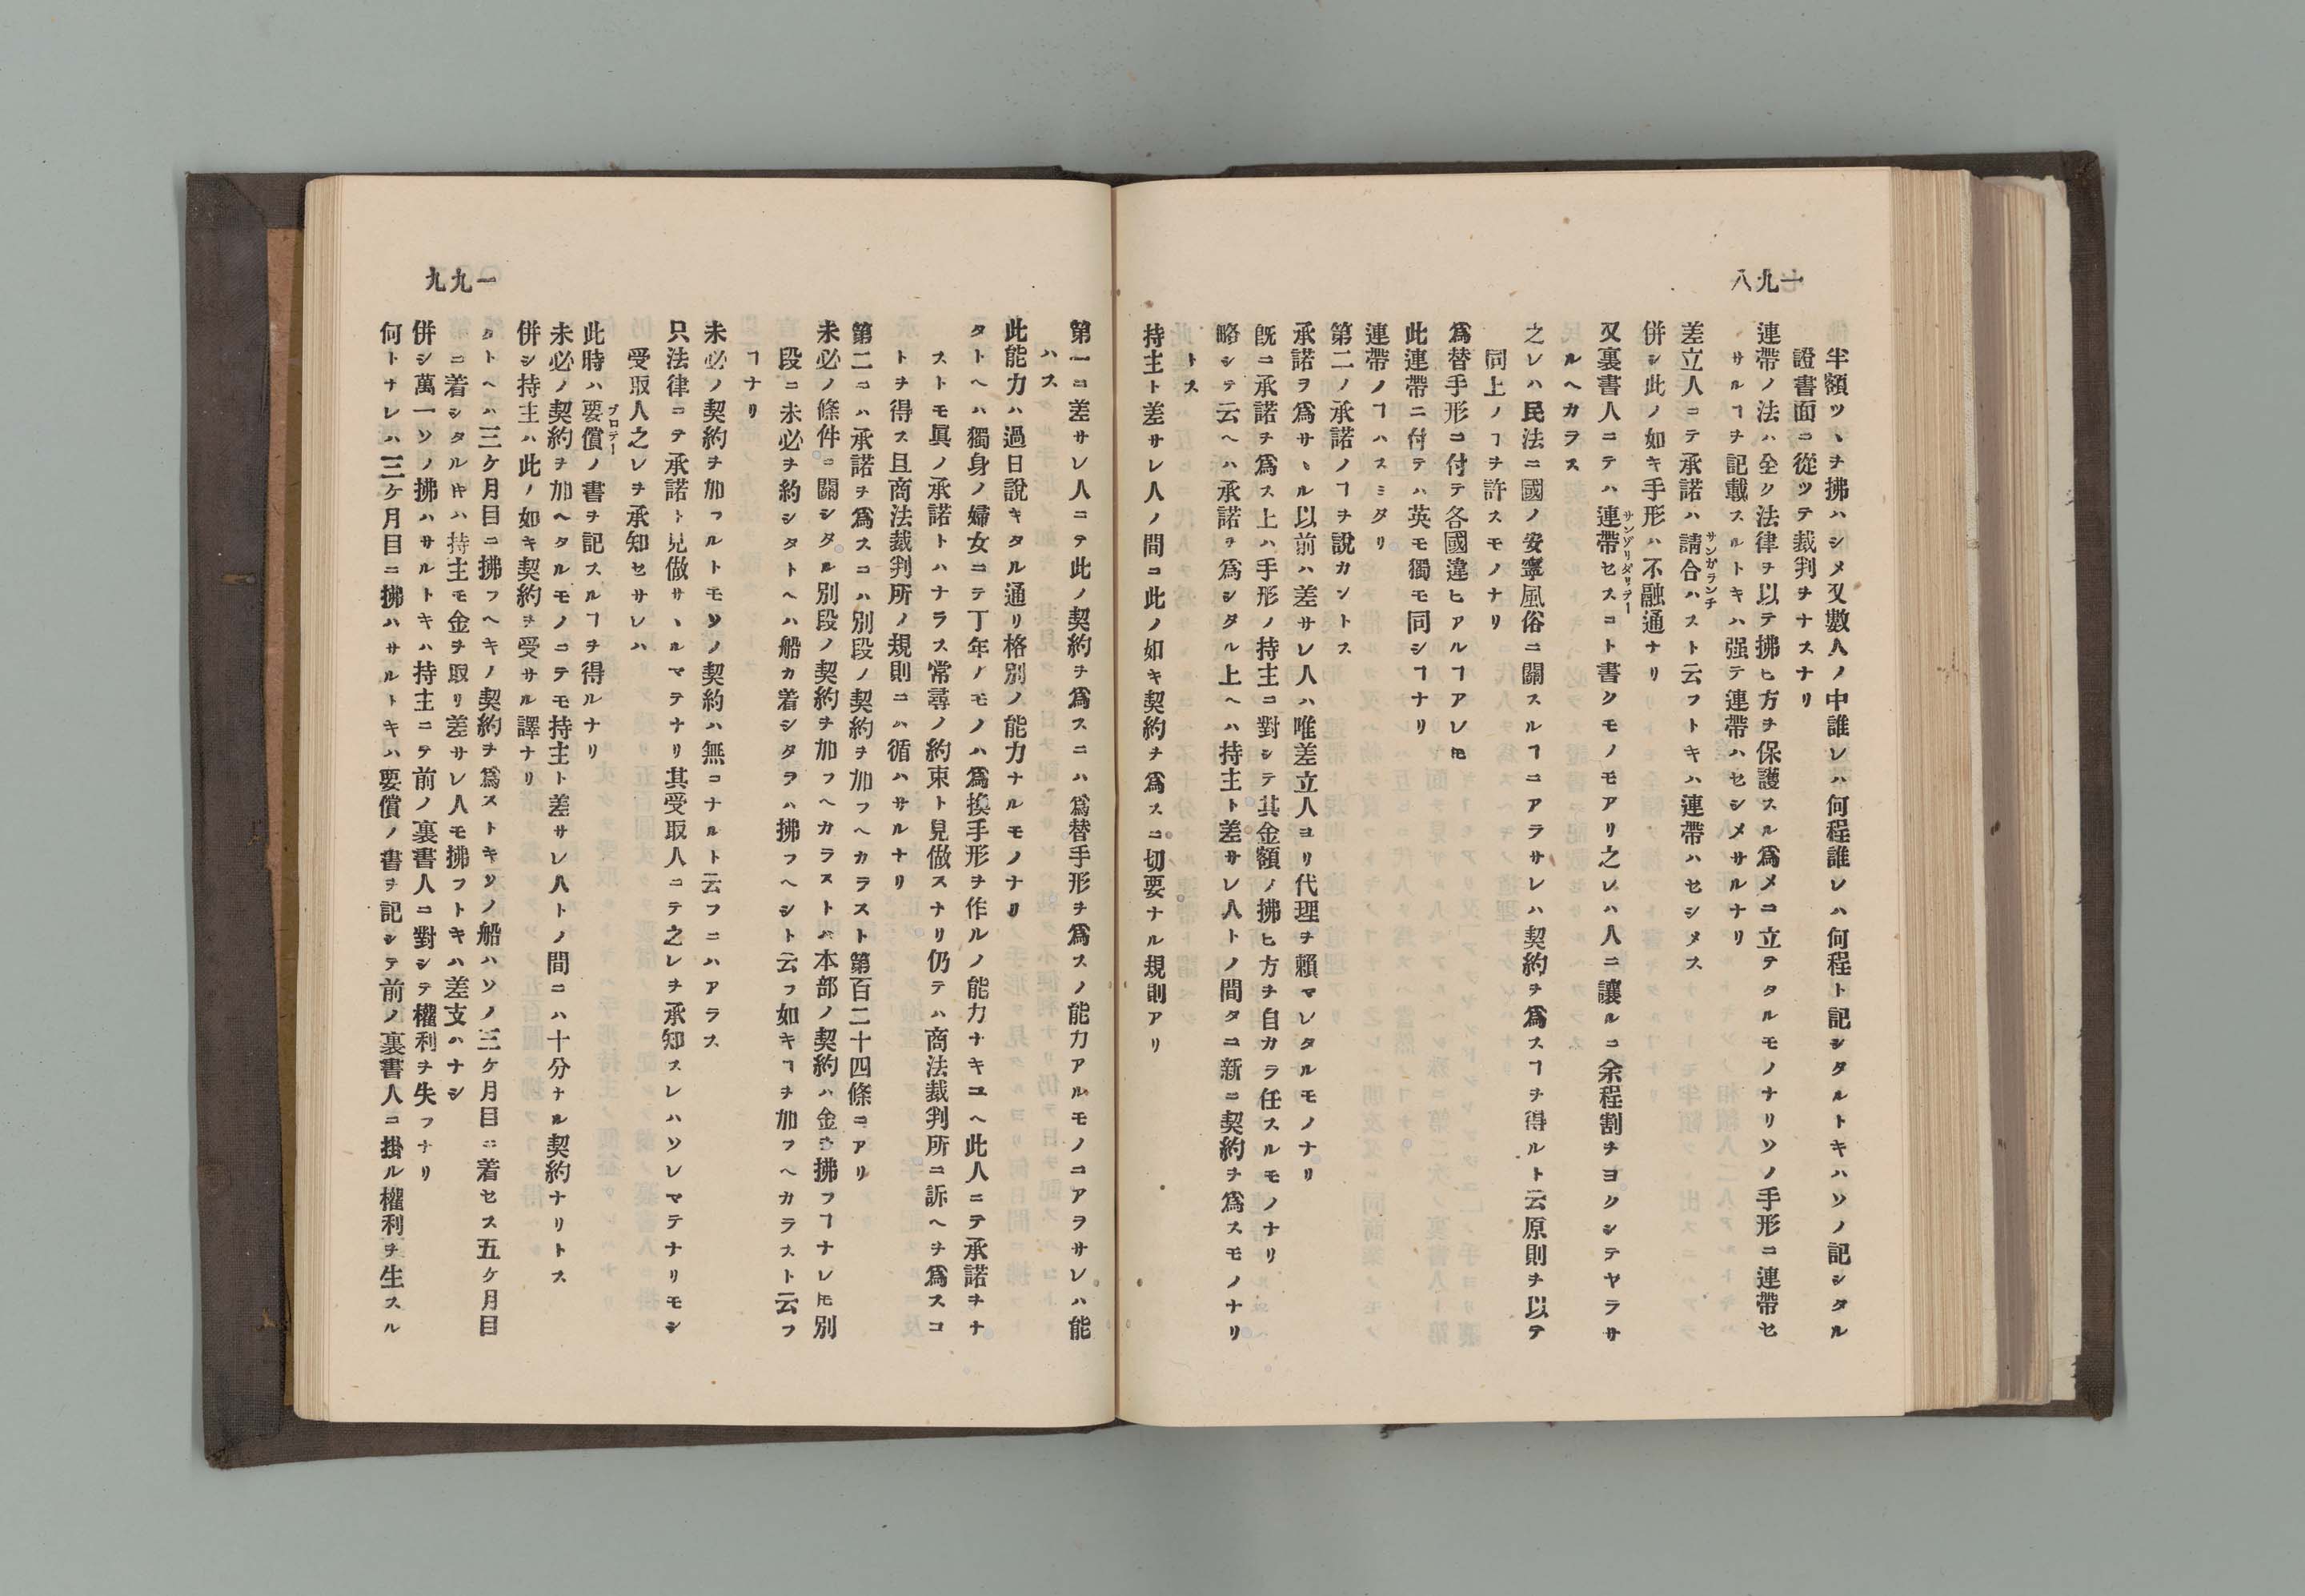 一九八
半額ツヽヲ拂ハシメ又數人ノ中誰レハ何程誰レハ何程ト記シタルトキハソノ記シタル
證書面ニ從ツテ裁判ヲナスナリ
連帶ノ法ハ全ク法律ヲ以テ拂ヒ方ヲ保護スル爲メニ立テタルモノナリソノ手形ニ連帶セ
ヽサルヿヲ記載スルトキハ强テ連帶ハセシメサルナリ
差立人ニテ承諾ハ請合ハスト云フトキハ連帶ハセシメス
サンガランチ
併シ此ノ如キ手形ハ不融通ナリ
又裏書人ニテハ連帶セスコト書クモノモアリ之レハ人ニ讓ルニ余程割ヲヨクシテヤラサ
サンゾリダリテー
ルヘカラス
之レハ民法ニ國ノ安寧風俗ニ關スルヿニアラサレハ契約ヲ爲スヿヲ得ルト云原則ヲ以テ
同上ノヿヲ許スモノナリ
爲替手形ニ付テ各國違ヒアルヿアレ𪜈
此連帶ニ付テハ英モ獨モ同シヿナリ
連帶ノヿハスミタリ
第二ノ承諾ノヿヲ說カントス
承諾ヲ爲サヽル以前ハ差サレ人ハ唯差立人ヨリ代理ヲ賴マレタルモノナリ
旣ニ承諾ヲ爲ス上ハ手形ノ持主ニ對シテ其金額ノ拂ヒ方ヲ自カラ任スルモノナリ
略シテ云ヘハ承諾ヲ爲シタル上ヘハ持主ト差サレ人トノ間タニ新ニ契約ヲ爲スモノナリ
トス
持主ト差サレ人ノ間ニ此ノ如キ契約ヲ爲スニ切要ナル規則アリ
一九九
第一ニ差サレ人ニテ此ノ契約ヲ爲スニハ爲替手形ヲ爲スノ能力アルモノニアラサレハ能
ハス
此能力ハ過日說キタル通リ格別ノ能力ナルモノナリ
タトヘハ獨身ノ婦女ニテ丁年ノモノハ爲換手形ヲ作ルノ能力ナキユヘ此人ニテ承諾ヲナ
ストモ眞ノ承諾トハナラス常尋ノ約束ト見做スナリ仍テハ商法裁判所ニ訴ヘヲ爲スコ
トヲ得ス且商法裁判所ノ規則ニハ循ハサルナリ
第二ニハ承諾ヲ爲スニハ別段ノ契約ヲ加フヘカラスト第百二十四條ニアリ
未必ノ條件ニ關シタル別段ノ契約ヲ加フヘカラストハ本部ノ契約ハ金ヲ拂フヿナレ𪜈別
段ニ未必ヲ約シタトヘハ船カ着シタラハ拂フヘシト云フ如キヿヲ加フヘカラスト云フ
ヿナリ
未必ノ契約ヲ加フルトモソノ契約ハ無ニナルト云フニハアラス
只法律ニテ承諾ト見做サヽルマテナリ其受取人ニテ之レヲ承知スレハソレマテナリモシ
受取人之レヲ承知セサレハ
此時ハ要償ノ書ヲ記スルヿヲ得ルナリ
プロテー
未必ノ契約ヲ加ヘタルモノニテモ持主ト差サレ人トノ間ニハ十分ナル契約ナリトス
併シ持主ハ此ノ如キ契約ヲ受サル譯ナリ
タトヘハ三ケ月目ニ拂フヘキノ契約ヲ爲ストキソノ船ハソノ三ケ月目ニ着セス五ケ月目
ニ着シタル𪜈ハ持主モ金ヲ取リ差サレ人モ拂フトキハ差支ハナシ
併シ萬一ソノ拂ハサルトキハ持主ニテ前ノ裏書人ニ對シテ權利ヲ失フナリ
何トナレハ三ケ月目ニ拂ハサルトキハ要償ノ書ヲ記シテ前ノ裏書人ニ掛ル權利ヲ生スル